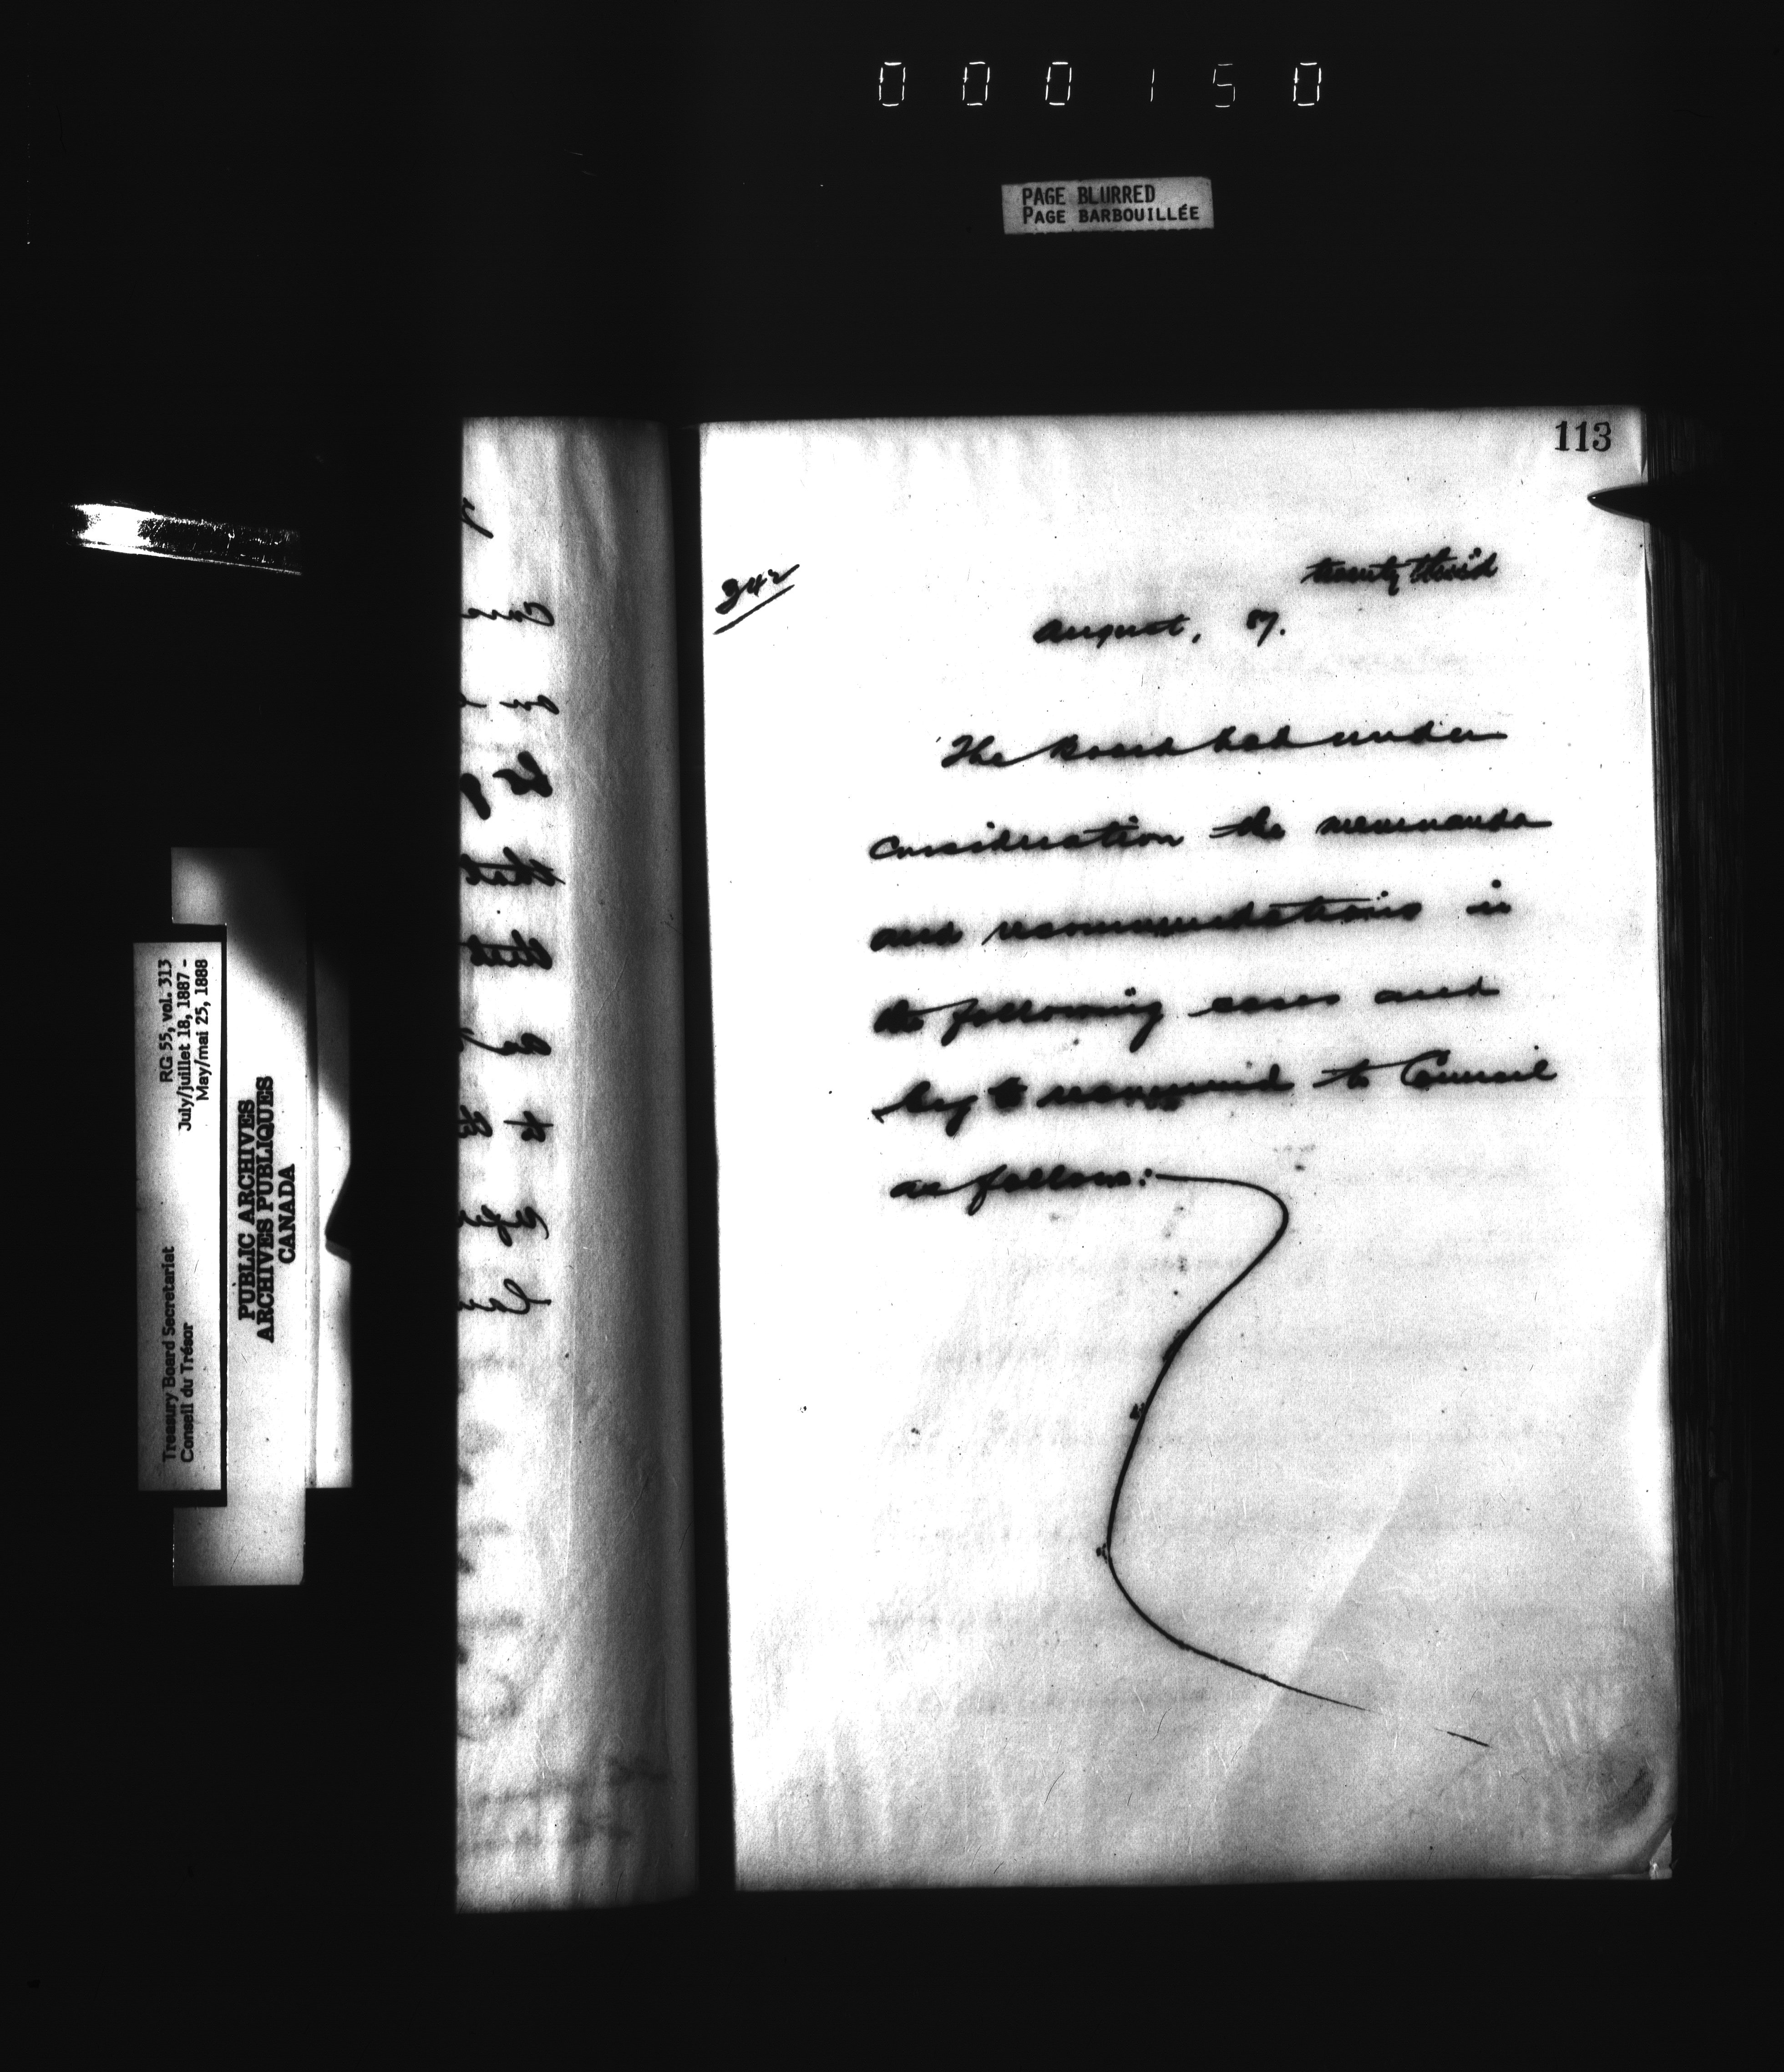 000150
PAGE BLURRED
PAGE BARBOUILLÉE
113
342
twenty third
August, 87.
The Board had under
consideration the memoranda
and recommendations in
the following cases and
beg to recommend to Council
as follows:
RG 55, vol. 313
July/juillet 18, 1887 -
May/mai 25, 1888
Treasury Board Secretariat
Conseil du Trésor
PUBLIC ARCHIVES
ARCHIVES PUBLIQUES
CANADA